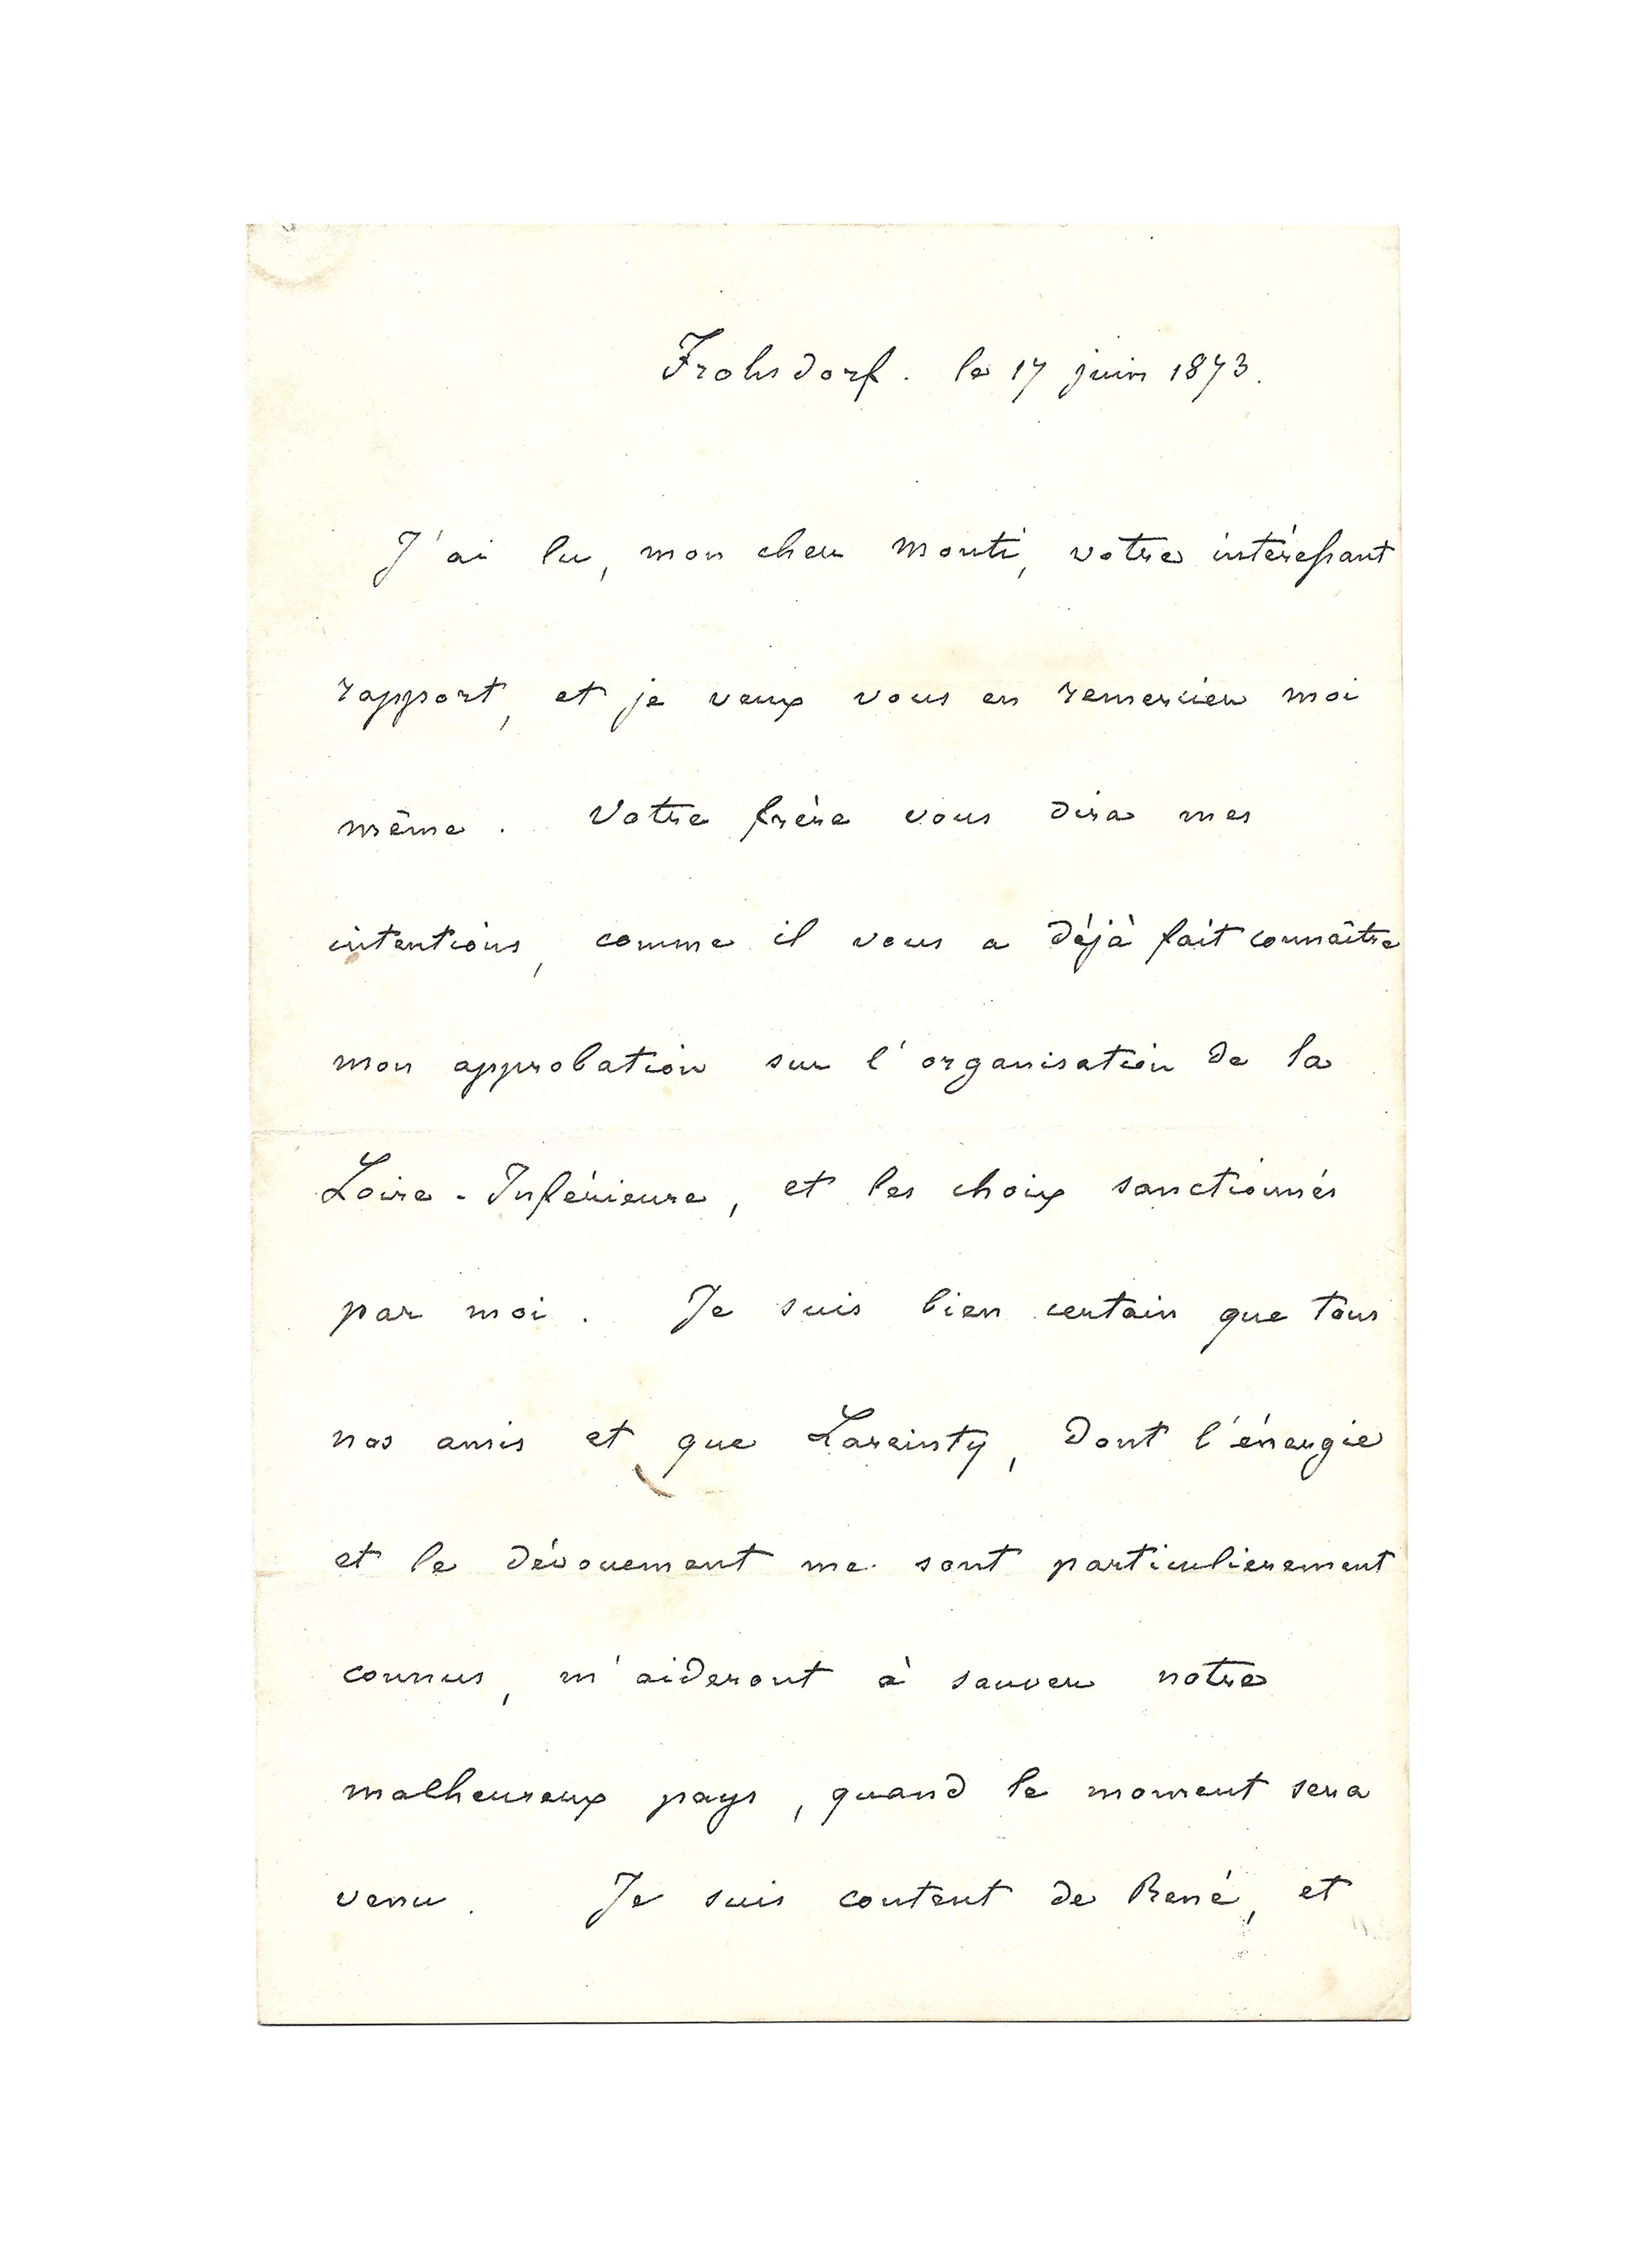 Frohsdorf. le 17 juin 1873.
J'ai lu, mon cher Monti, votre intéressant
rapport, et je veux vous en remercier moi
même. Votre frère vous dira mes
intentions, comme il vous a déjà fait connaître
mon approbation sur l'organisation de la
Loire-Inférieure, et les choix sanctionnés
par moi. Je suis bien certain que tous
nos amis et que Lareinty, dont l'énergie
et le dévouement me sont particulierement
connus, m'aideront à sauver notre
malheureux pays, quand le moment sera
venu. Je suis content de René, et